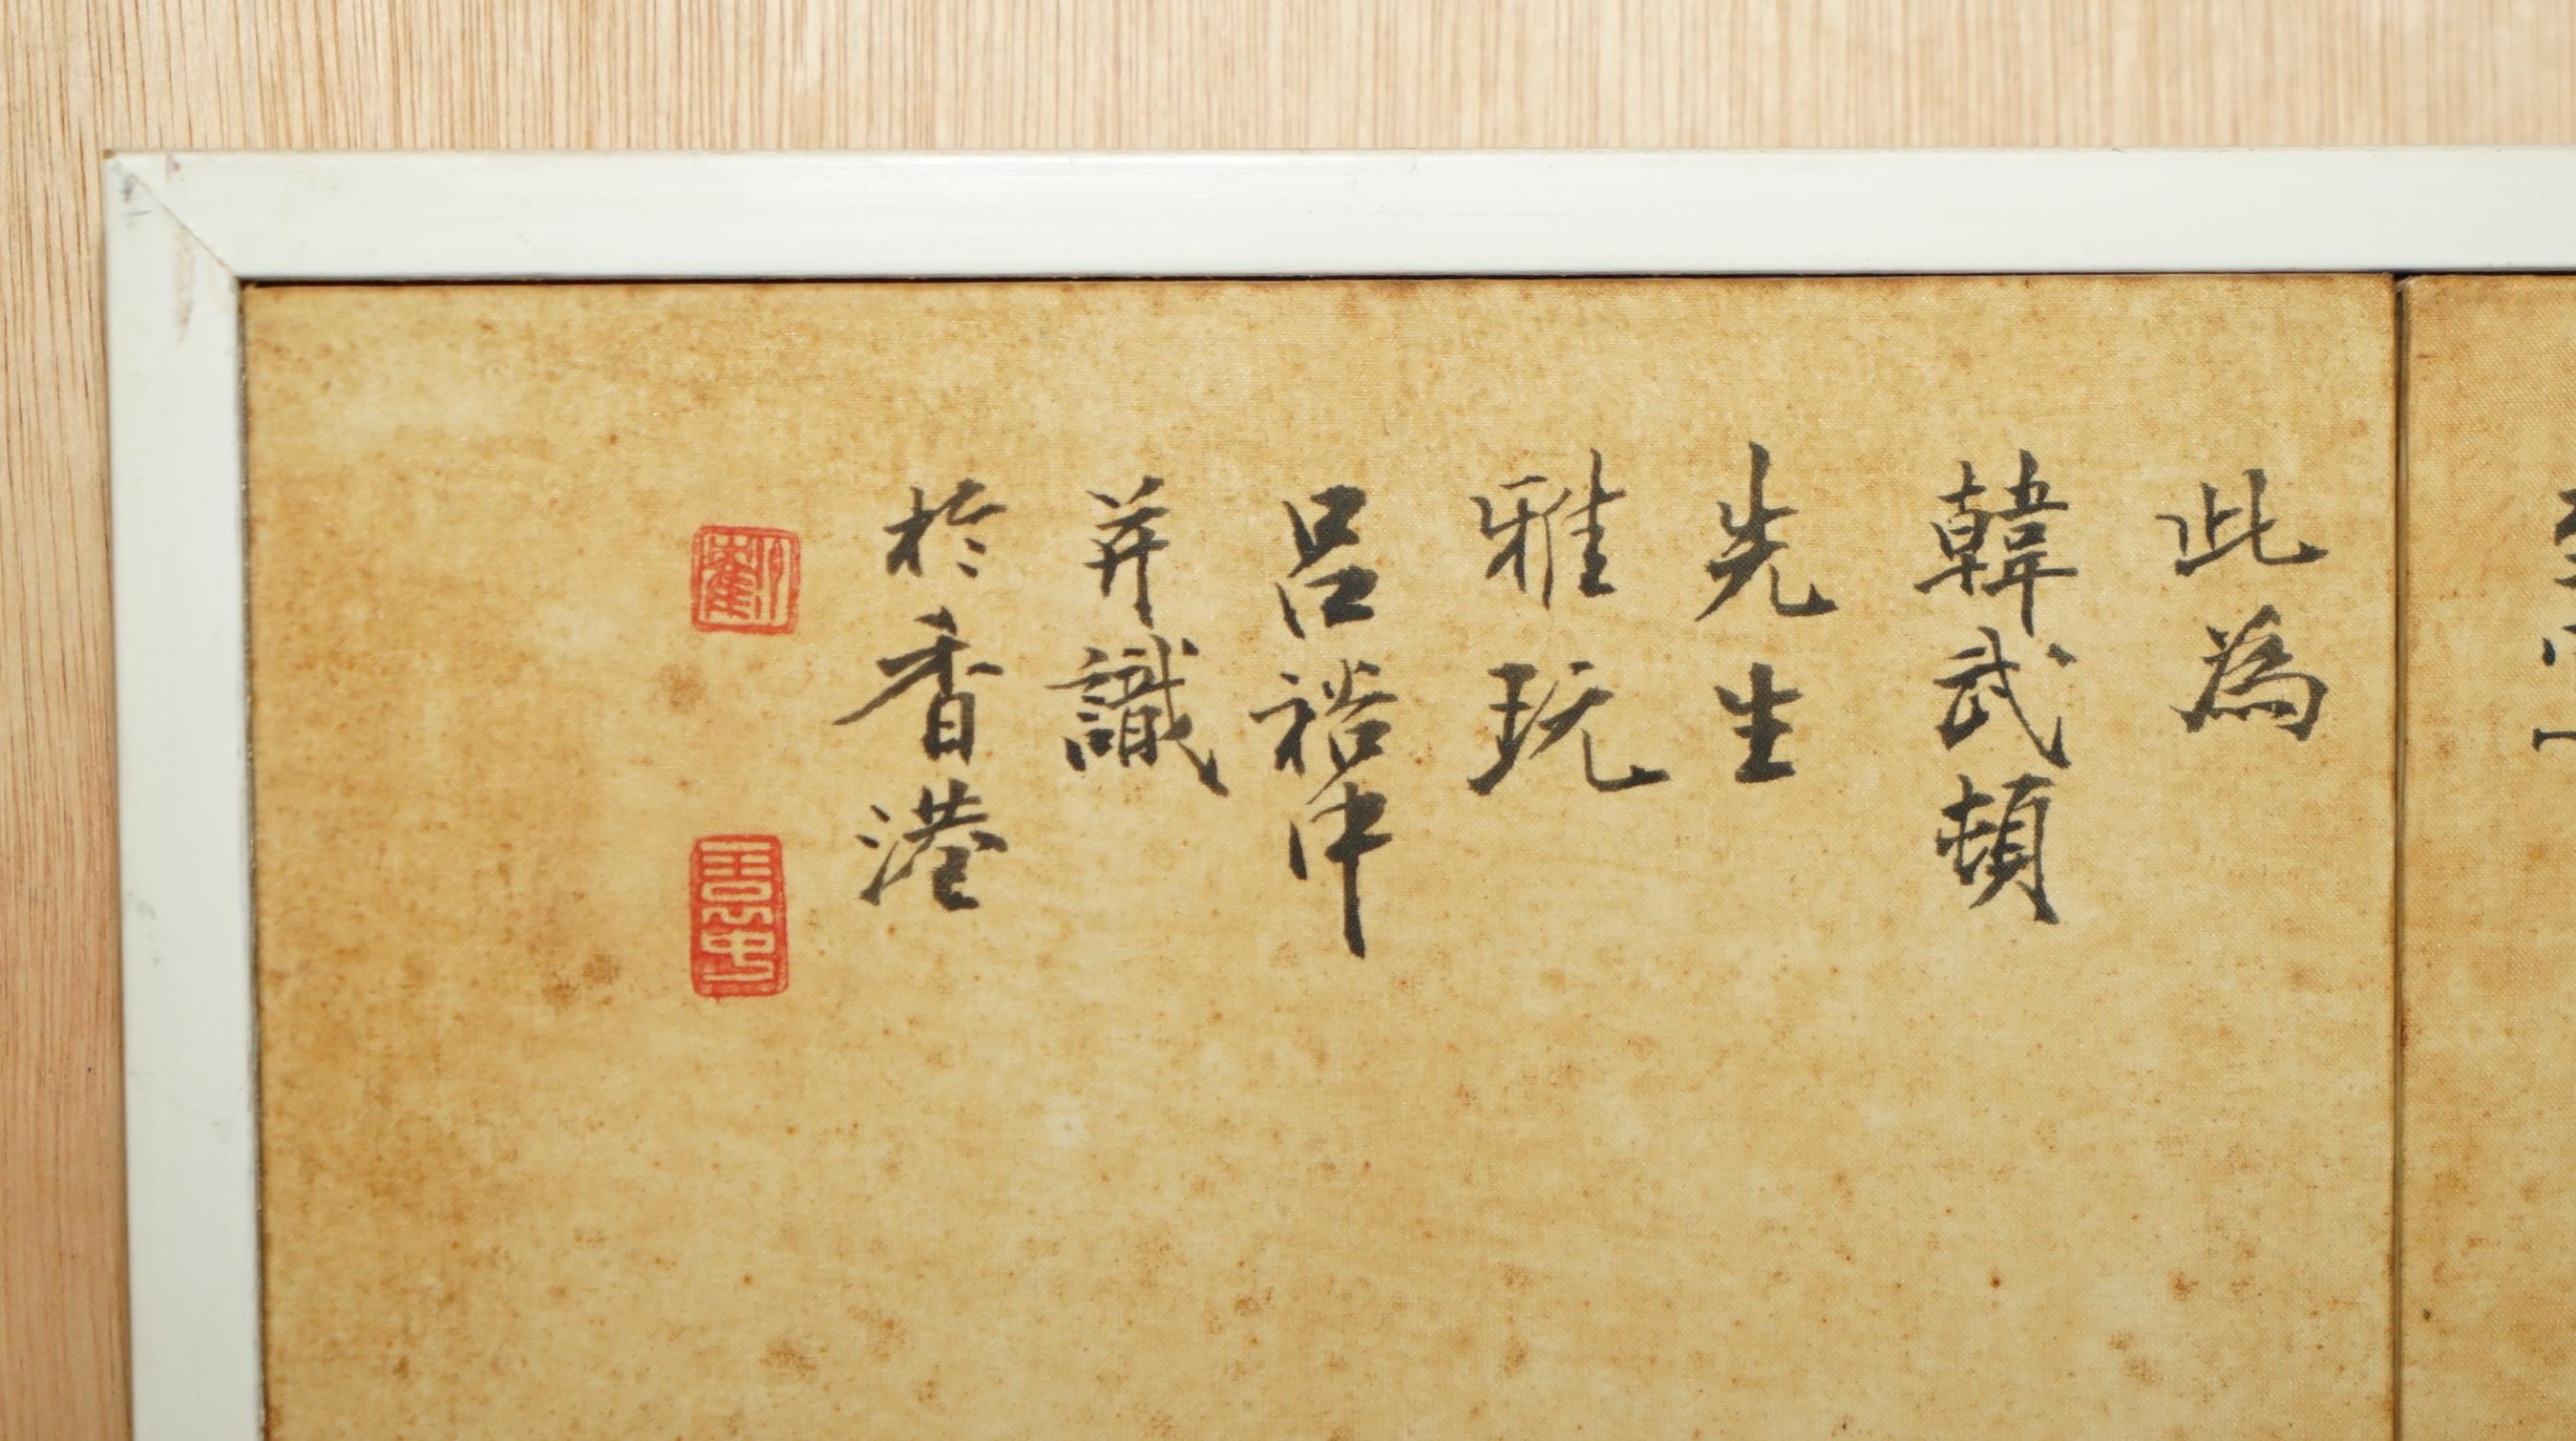 此為
韓武頓
先生
雅玩
呂裕中
並識
於香港